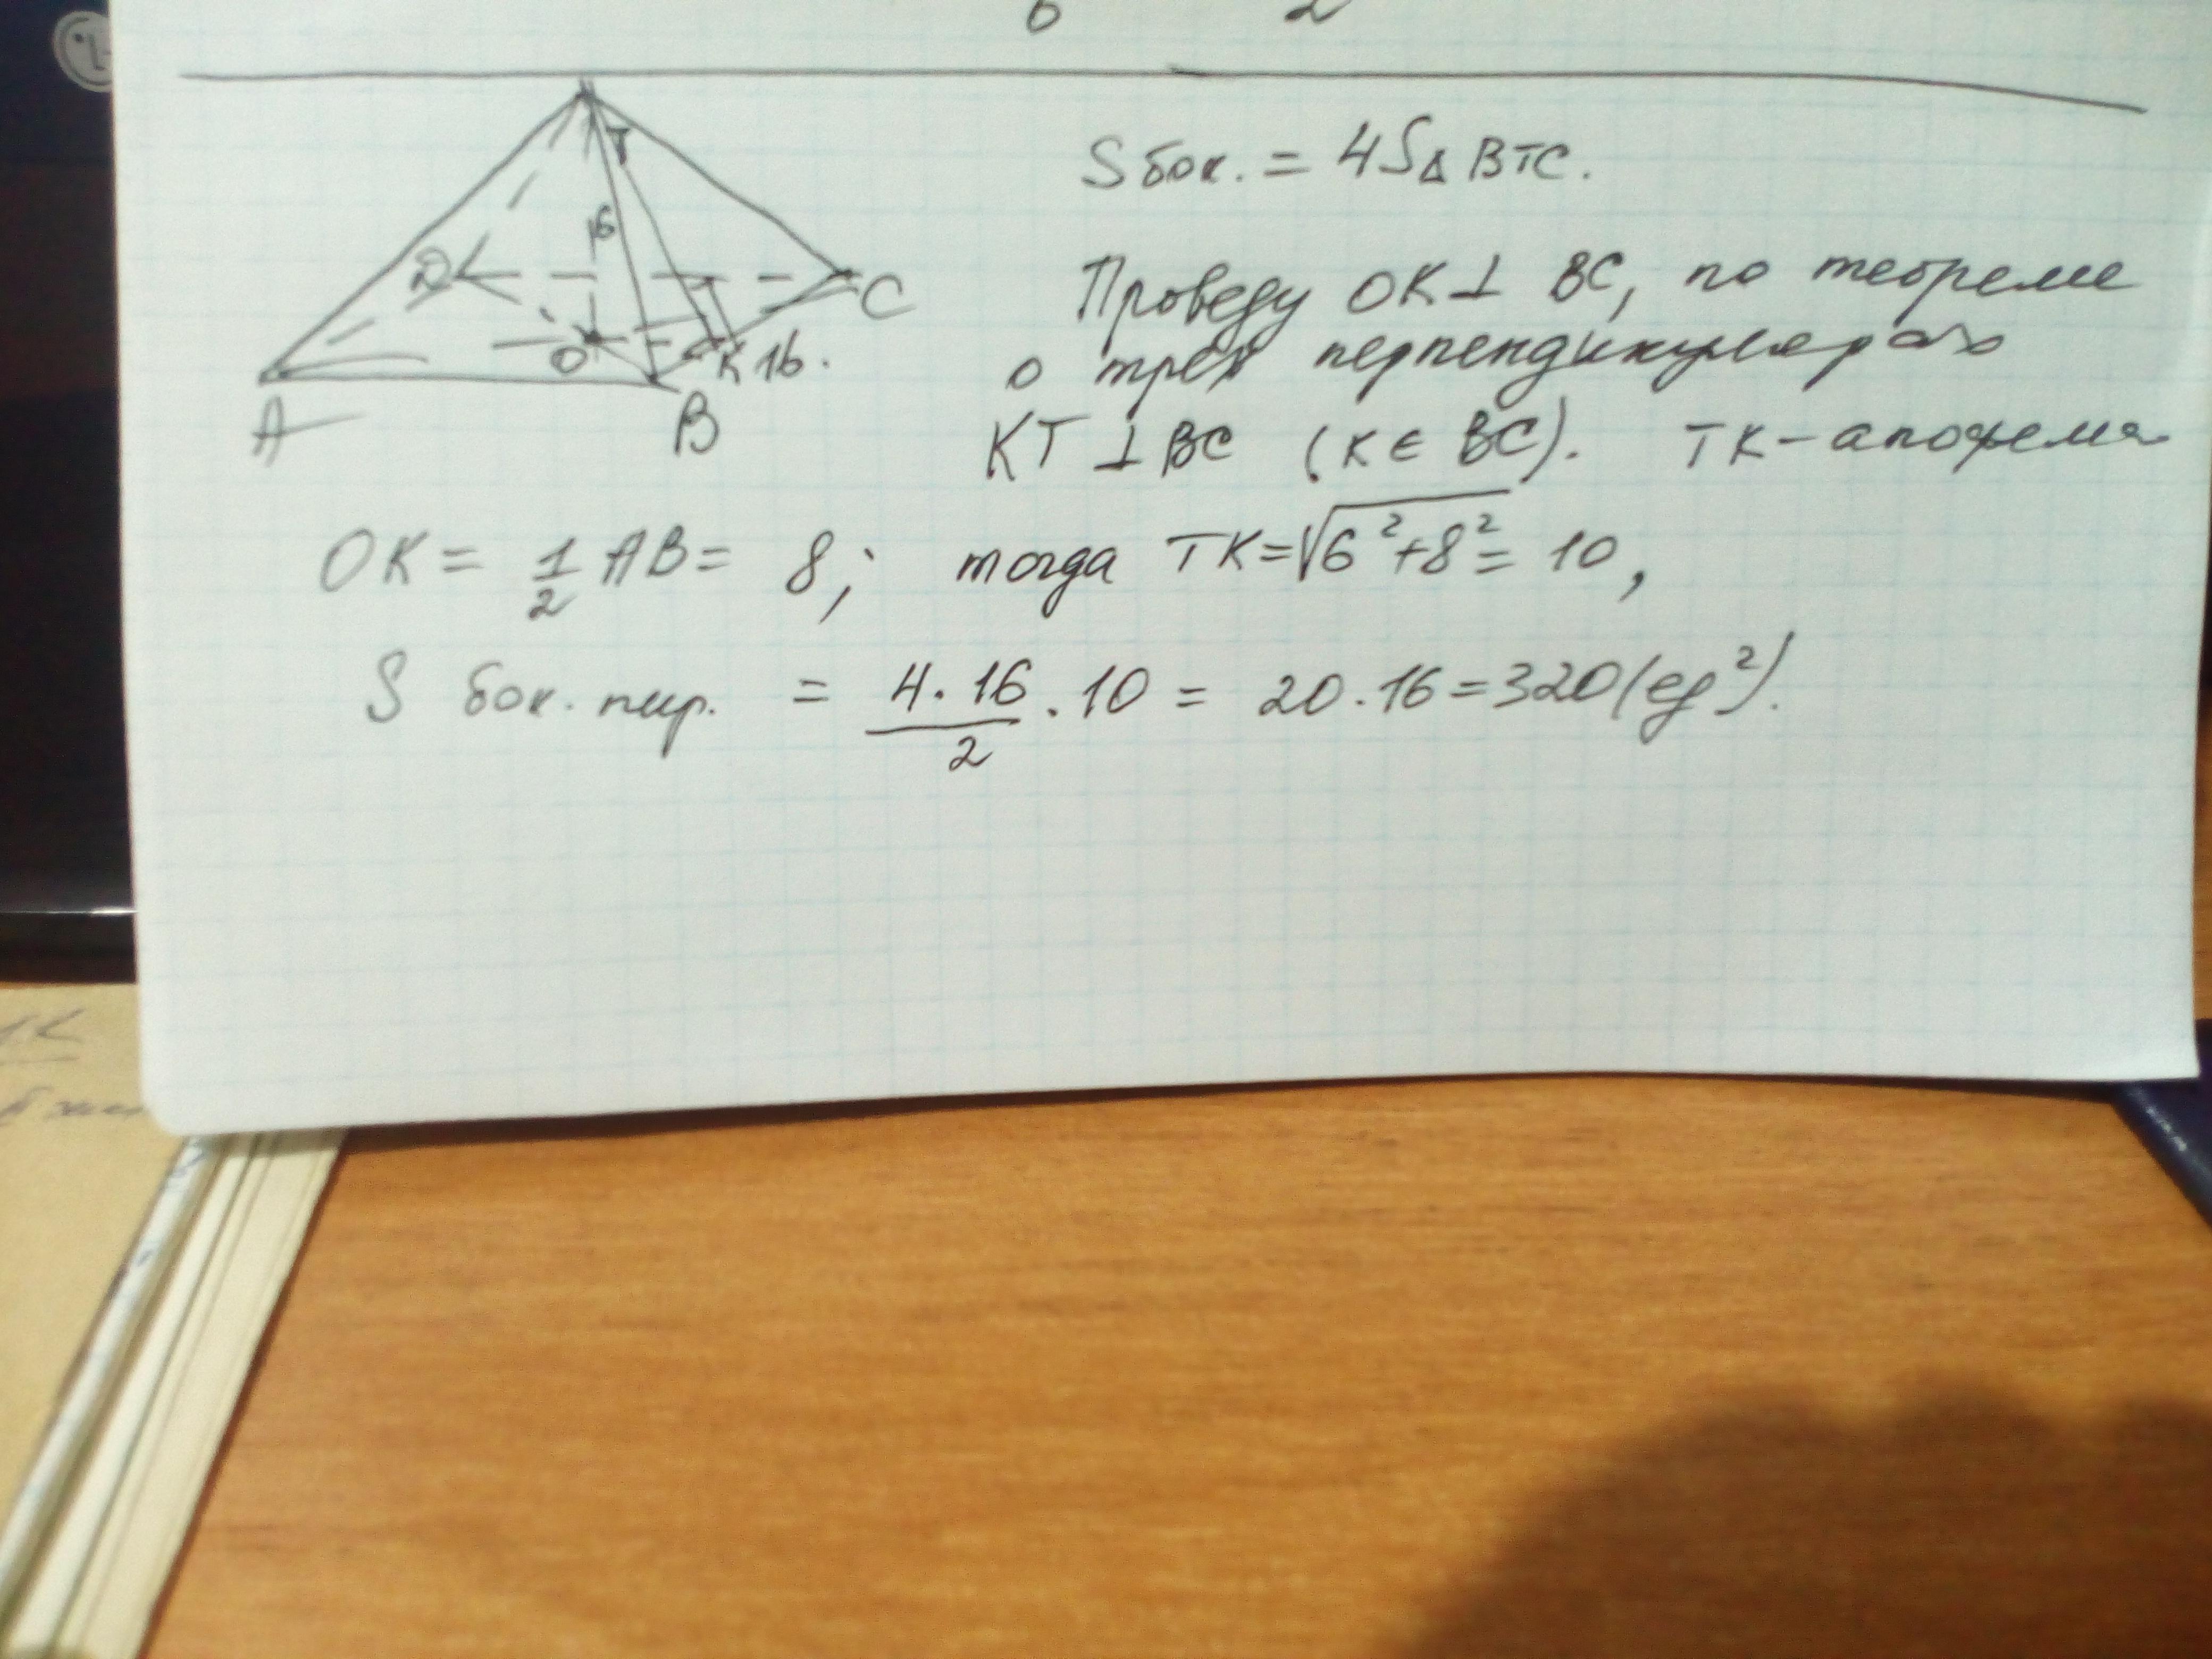 6 2
T
6
D
C
O
K 16.
A
B
S бок. = 4S∆ BTC.
Проведу OK⊥ BC, по теореме
о трех перпендикулярах
KT ⊥ BC (K ∈ BC). TK - апофема
OK = 1/2 AB = 8; тогда TK = √6²+8² = 10,
S бок. пир. = 4·16/2 · 10 = 20·16 = 320 (ед²).